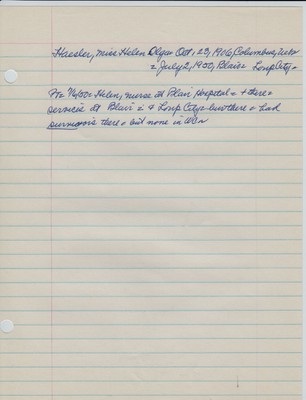 Haesler, Miss Helen Olga Oct. 23, 1916, Columbus, Nebr
July 2, 1950, Blair Loup City
7/6/50 Helen, nurse at Blair Hospital + there
service at Blair + Loup City there had
survivors there but none in